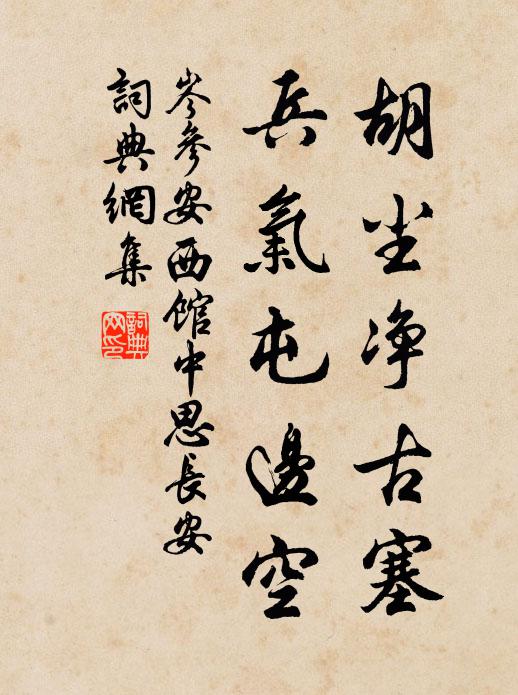 胡尘净古塞
兵氣屯邊空
岑參安西館中思長安
詞典網集
詞典網印